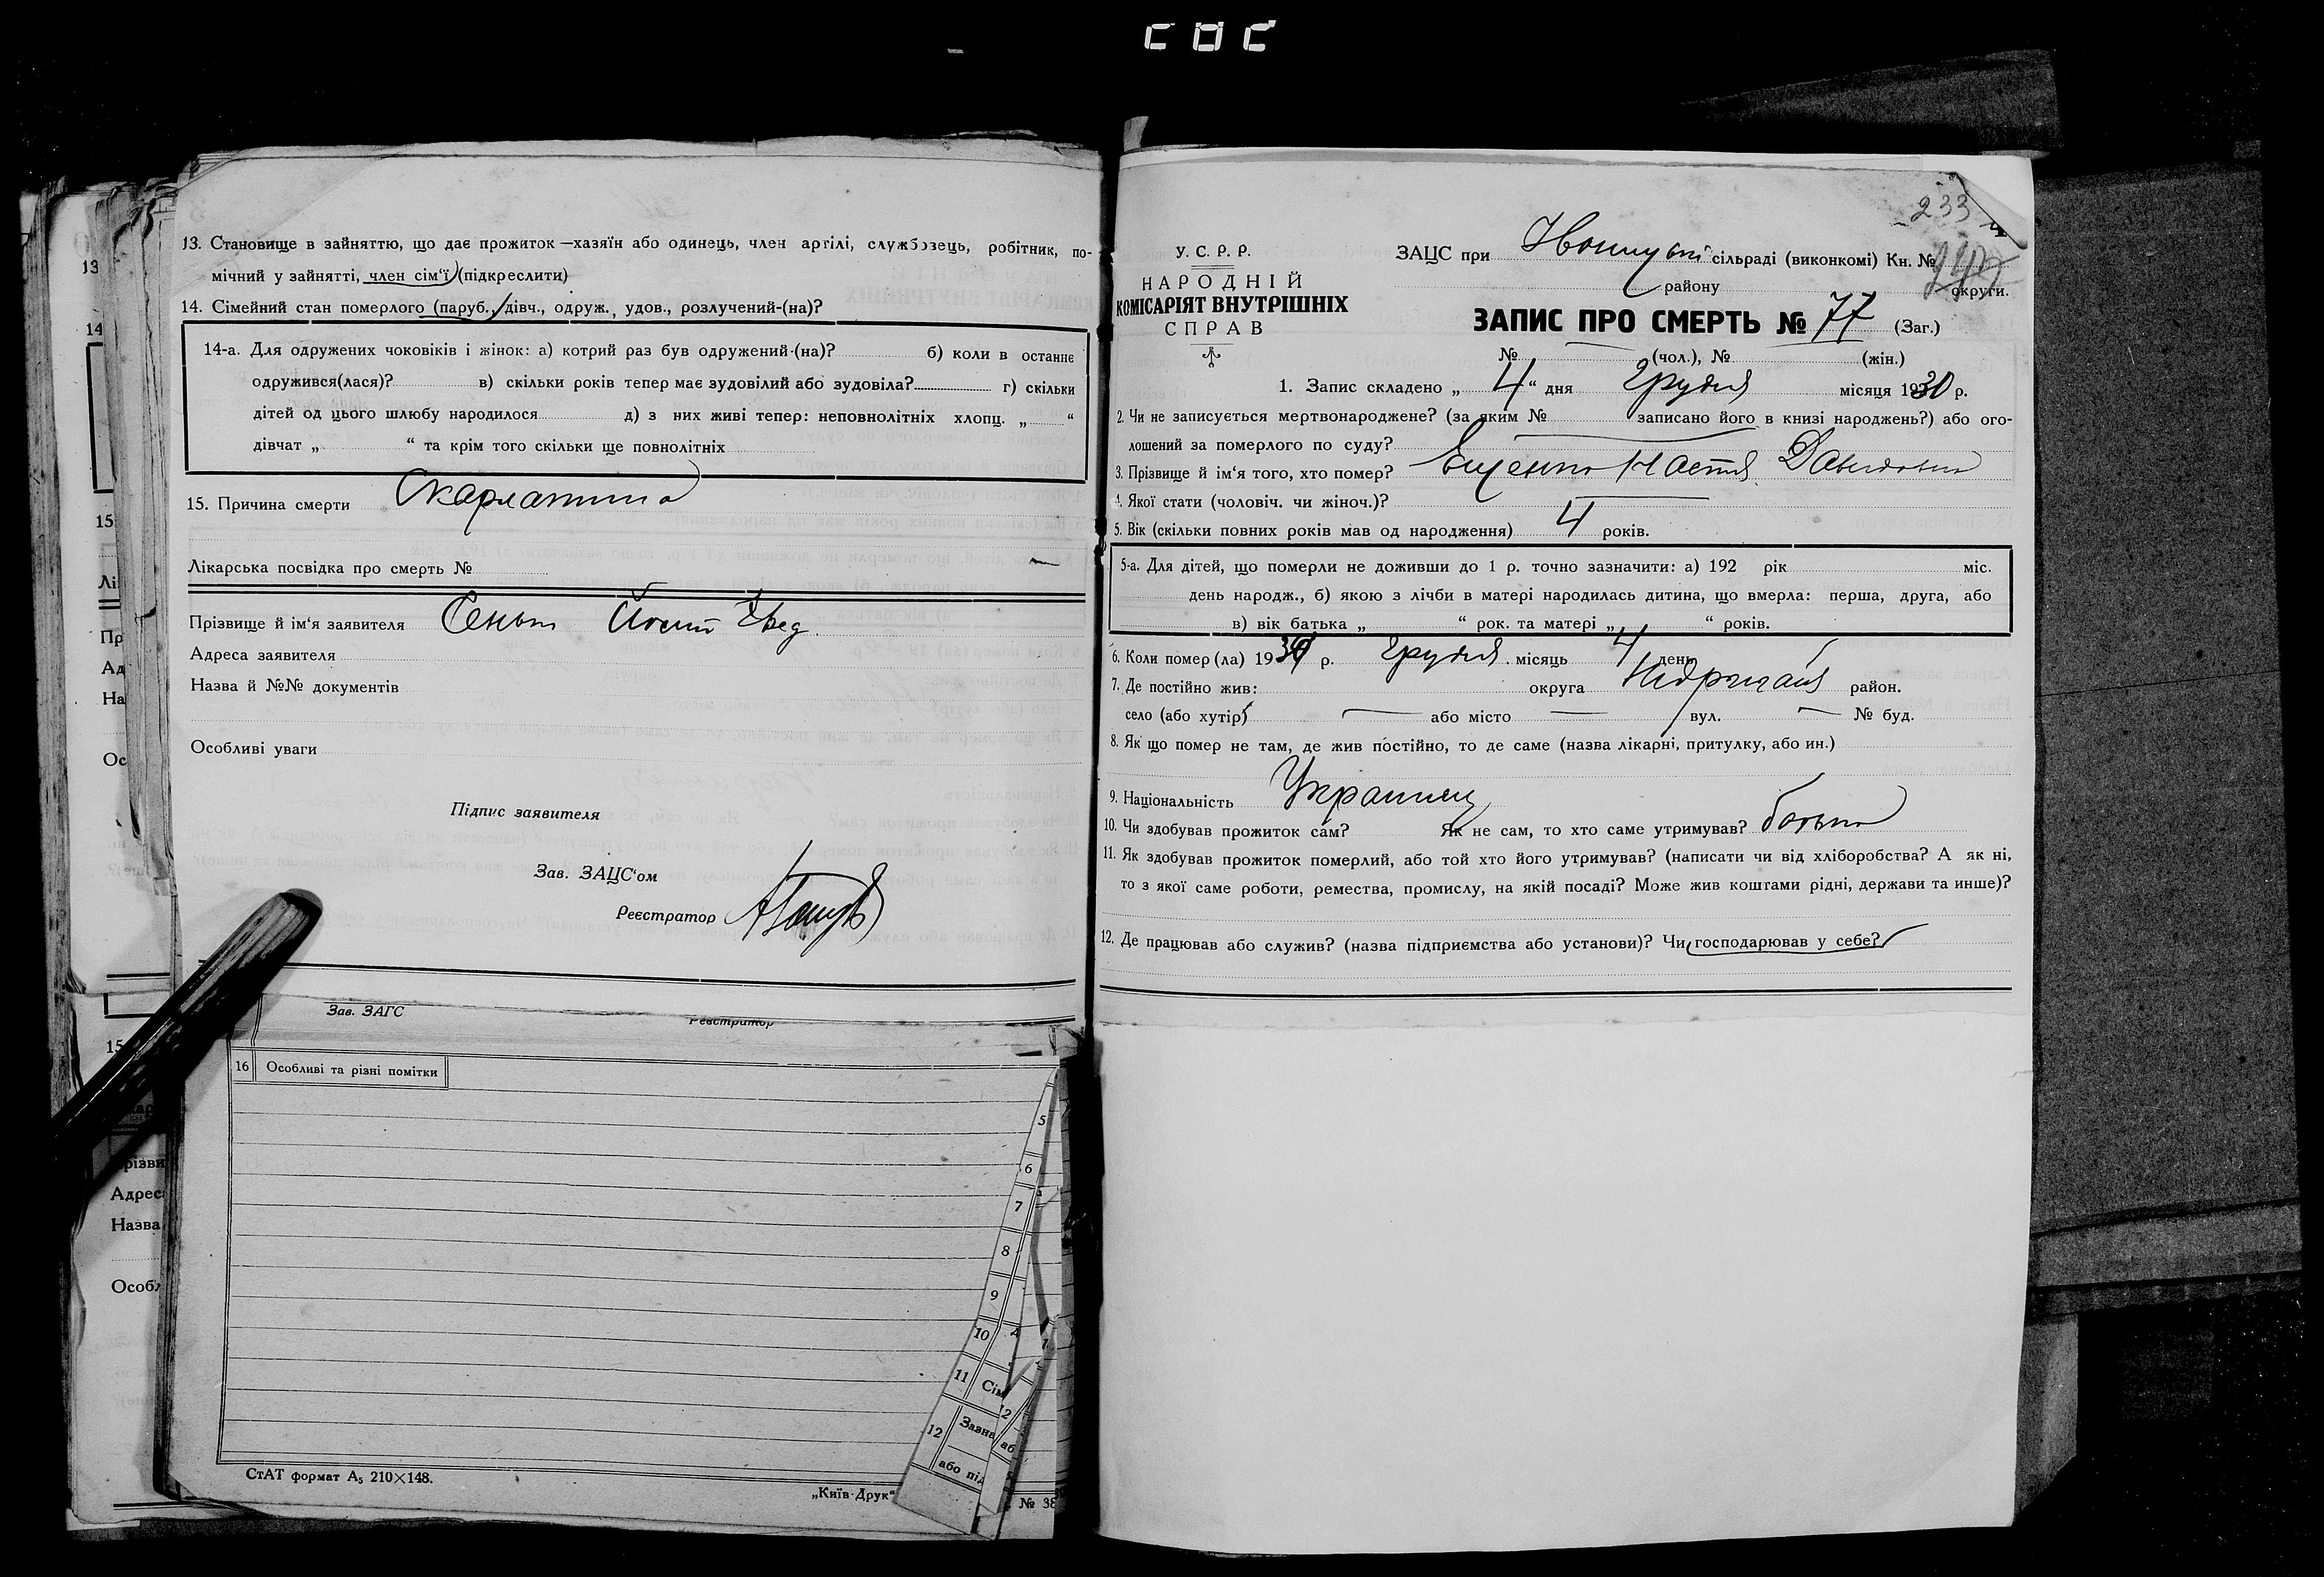 13. Становище в зайняттю, що дає прожиток —хазяїн або одинець, член артілі, службовець, робітник, по-
мічний у зайнятті, член сім‘ї (підкреслити)
14. Сімейний стан померлого (паруб., дівч., одруж., удов., розлучений-(на)?
14-а. Для одружених чоковіків і жінок: а) котрий раз був одружений-(на)? б) коли в останнє
одружився(лася)? в) скільки років тепер має зудовілий або зудовіла? г) скільки
дітей од цього шлюбу народилося д) з них живі тепер: неповнолітніх хлопц. „ “
дівчат „ “ та крім того скільки ще повнолітніх
15. Причина смерти Скарлатина
Лікарська посвідка про смерть № —
Прізвище й ім‘я заявителя
Адреса заявителя
Назва й №№ документів
Особливі уваги
Підпис заявителя
Зав. ЗАЦС‘ом
Реєстратор
Зав. ЗАГС Реєстратор
16 Особливі та різні помітки
СтАТ формат А5 210×148.
„Київ-Друк“
№ 38
5
6
7
8
9
10
11 Сім
12 Завна
або під
13
14
15
Лі
Пр
Ад
На
Ос
15
різви
Адрес
Назва
Особл
233
У. С. Р. Р.
НАРОДНІЙ
КОМІСАРІЯТ ВНУТРІШНІХ
СПРАВ
ЗАЦС при сільраді (виконкомі) Кн. №
району округи.
ЗАПИС ПРО СМЕРТЬ № 77 (Заг.)
№ (чол.), № (жін.)
1. Запис складено „ 4 “ дня Грудня місяця 1930 р.
2. Чи не записується мертвонароджене? (за яким № записано його в книзі народжень?) або ого-
лошений за померлого по суду?
3. Прізвище й ім‘я того, хто помер? Настя Давидовна
4. Якої стати (чоловіч. чи жіноч.)?
5. Вік (скільки повних років мав од народження) 4 років.
5-а. Для дітей, що померли не доживши до 1 р. точно зазначити: а) 192 рік міс.
день народж., б) якою з лічби в матері народилась дитина, що вмерла: перша, друга, або
в) вік батька „ “ рок. та матері „ “ років.
6. Коли помер (ла) 1930 р. Грудня місяць 4 день
7. Де постійно жив: округа район.
село (або хутір) — або місто — вул. — № буд.
8. Як що помер не там, де жив постійно, то де саме (назва лікарні, притулку, або ин.)
9. Національність Украинец
10. Чи здобував прожиток сам? Як не сам, то хто саме утримував? батько
11. Як здобував прожиток померлий, або той хто його утримував? (написати чи від хліборобства? А як ні,
то з якої саме роботи, ремества, промислу, на якій посаді? Може жив коштами рідні, держави та инше)?
12. Де працював або служив? (назва підприємства або установи)? Чи господарював у себе?